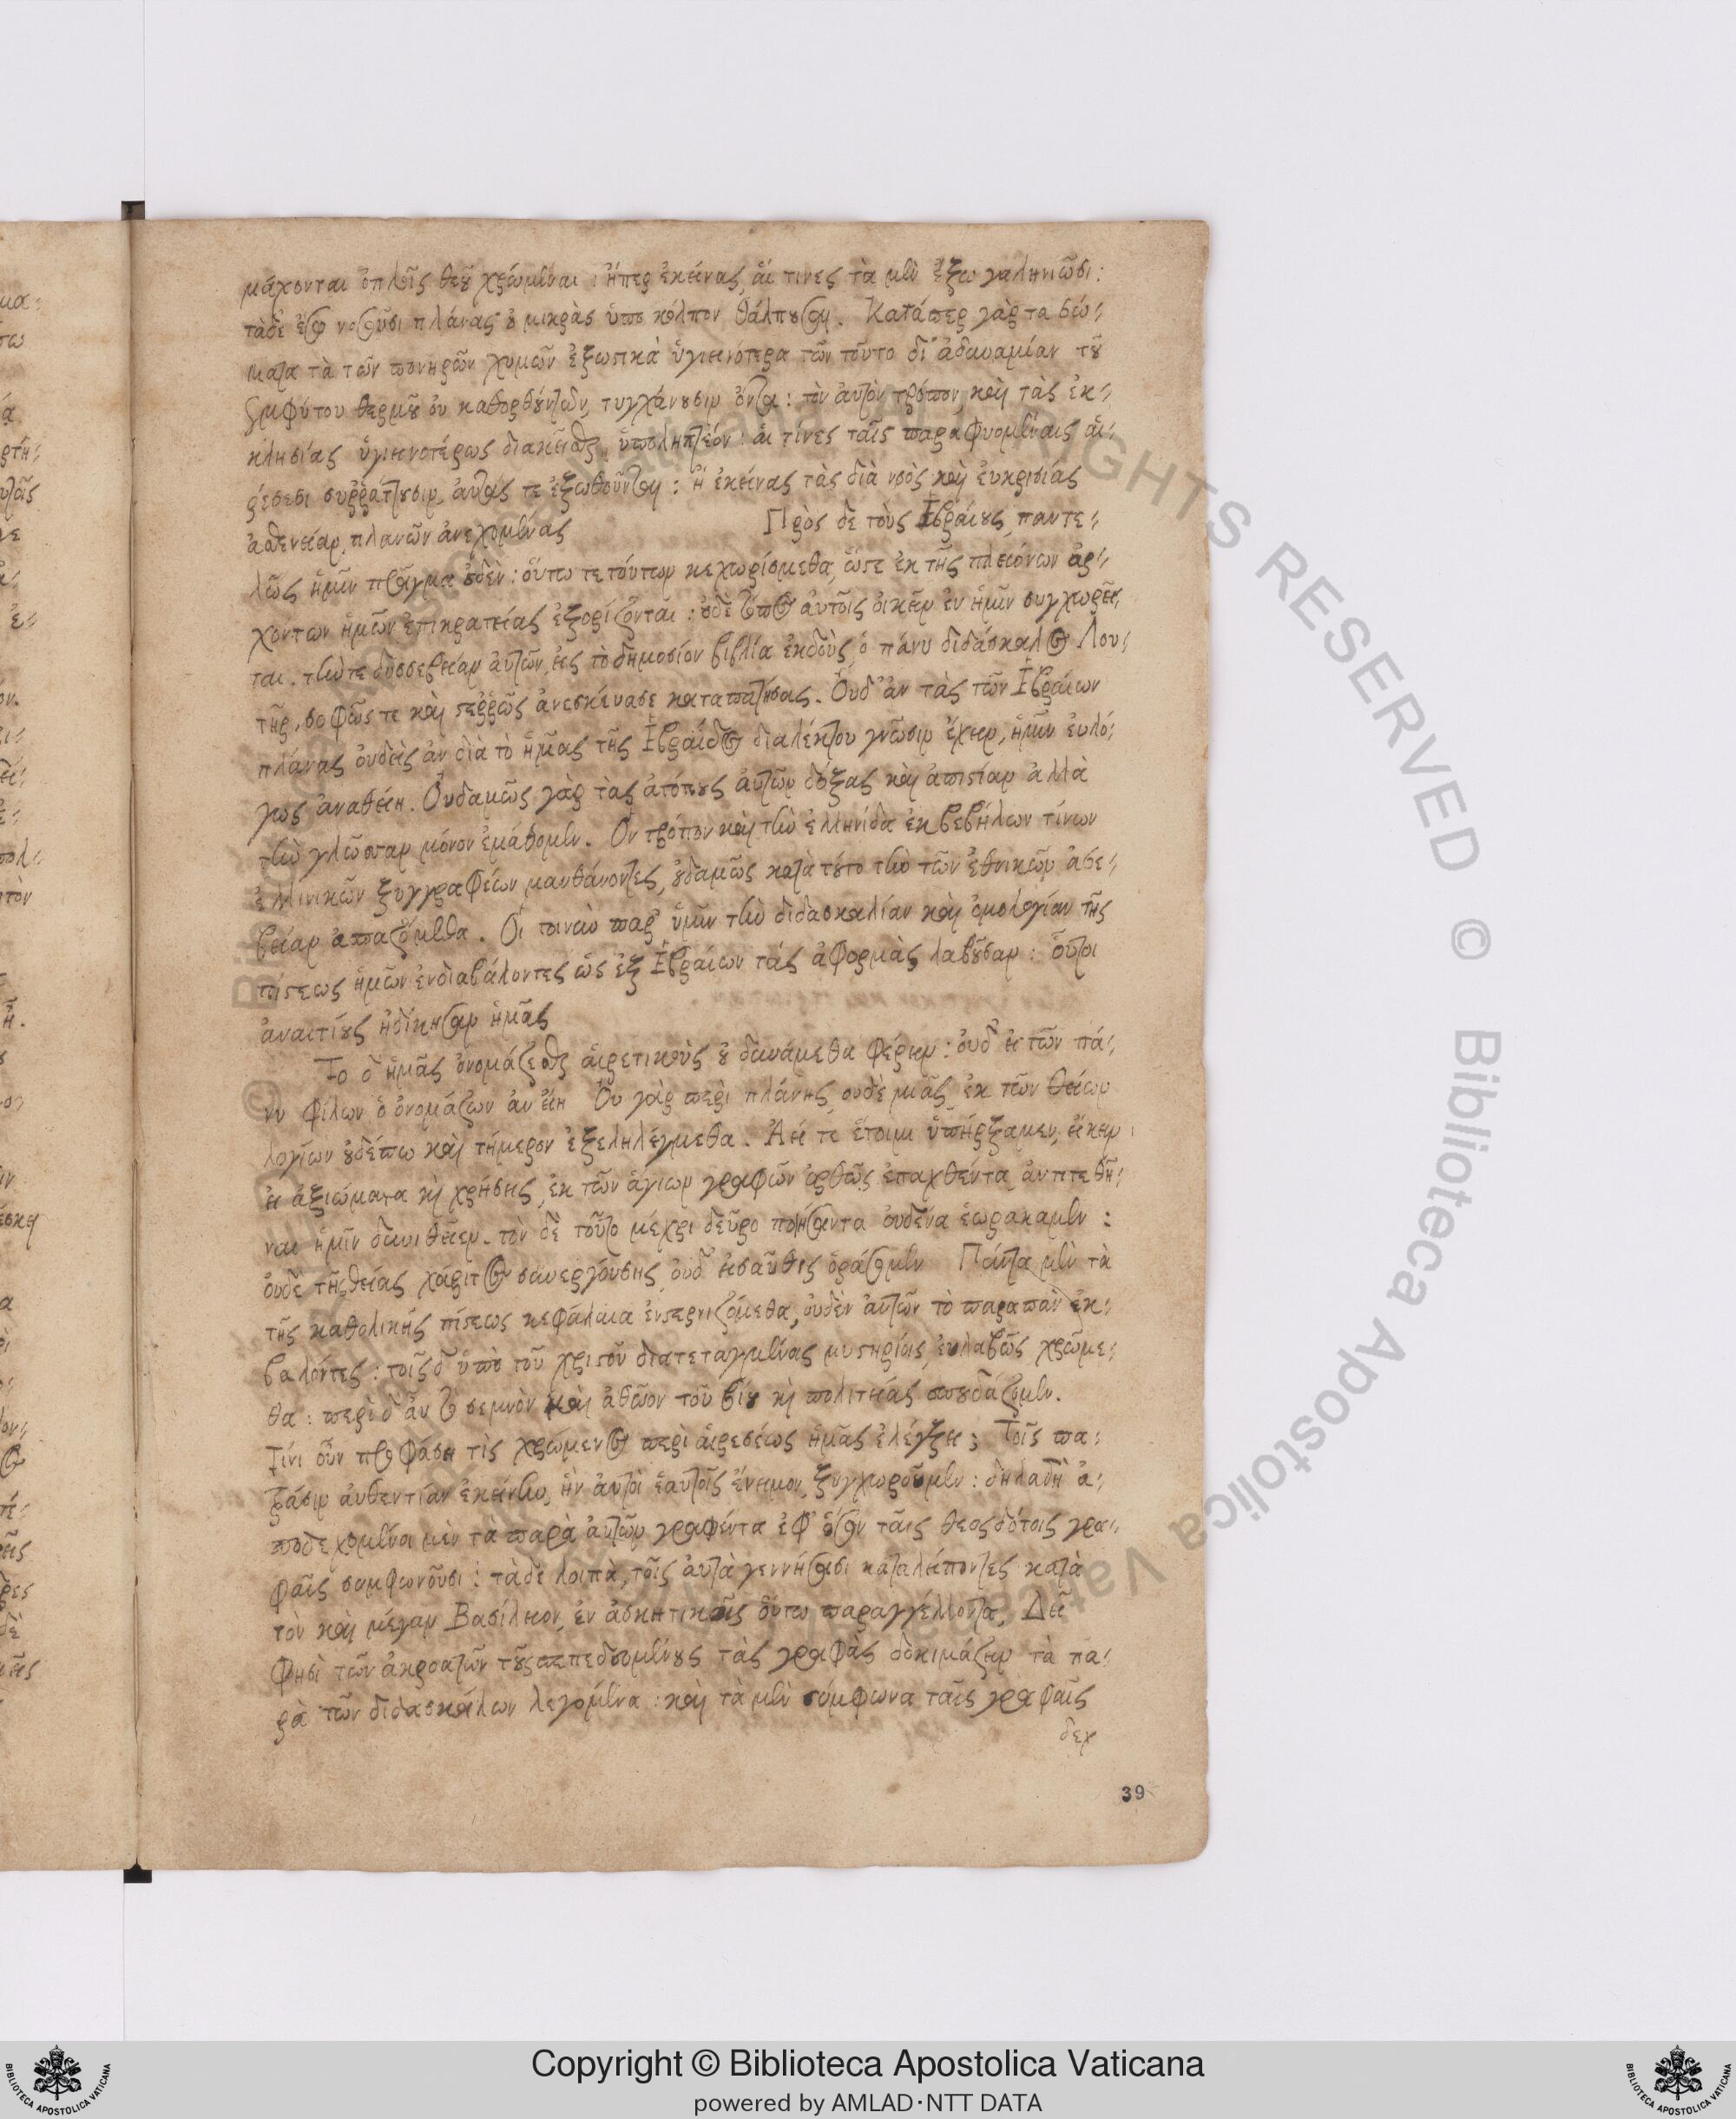 μάχονται ὅπλοις θεοῦ χρώμεναι : ἤπερ ἐκείνας, αἵ τινες τὰ μὲν ἔξω γαληνιῶσι :
τὰδὲ ἔσω νοσοῦσι πλάνας οὐ μικρὰς ὑπο κόλπον θάλπουσαι. Κατάπερ γὰρ τα σώ-
ματα τὰ τῶν πονηρῶν χυμῶν ἐξωστικὰ ὑγιεινότερα τῶν τοῦτο δι' ἀδυναμίαν τοῦ
ἐμφύτου θερμοῦ οὐ καθορθούντων, τυγχάνουσιν ὄντα : τὸν αὐτὸν τρόπον, καὶ τὰς ἐκ-
κλησίας ὑγιεινοτέρως διακεῖσθαι ὑποληπτέον : αἵ τίνες ταῖς παραφυομέναις αἱ-
ρέσεσι συῤῥάττουσιν, αὐτάς τε ἐξωθοῦνται : ἢ ἐκείνας τὰς διὰ νοὸς καὶ εὐκρισίας
ἀσθένειαν, πλανῶν ἀνεχομένας Πρὸς δὲ τοὺς Ἑβραίους, παντε-
λῶς ἡμῖν πρᾶγμα οὐδὲν : οὕτω τε τούτων κεχωρίσμεθα, ὥστε ἐκ τῆς πλειόνων ἀρ-
χόντων ἡμῶν ἐπικρατείας ἐξορίζονται : οὐδὲ τόπος αὐτοῖς οἰκεῖν ἐν ἡμῖν συγχωρεῖ-
ται. τήν τε δυσσέβειαν αὐτῶν, εἰς τὸ δημοσίον βιβλία ἐκδοὺς, ὁ πάνυ διδάσκαλος Λου-
τῆρ, σοφῶς τε καὶ στεῤῥῶς ἀνεσκεύασε καταπατήσας. Οὐδ' ἂν τὰς τῶν Ἑβραίων
πλάνας οὐδεὶς ἂν διὰ τὸ ἡμᾶς τῆς Ἑβραίδος διαλέκτου γνῶσιν ἔχειν, ἡμῖν εὐλό-
γως ἀναθείη. Οὐδαμῶς γὰρ τὰς ἀτόπους αὐτῶν δόξας καὶ ἀπιστίαν ἀλλὰ
τὴν γλῶσσαν μόνον ἐμάθομεν. Ὃν τρόπον καὶ τὴν ἑλληνίδα ἐκ βεβήλων τίνων
ἑλληνικῶν ξυγγραφέων μανθάνοντες, οὐδαμῶς κατὰ τοῦτο τὴν τῶν ἐθνικῶν ἀσέ-
βειαν ἀσπαζόμεθα. Οἱ τοινῦν παρ' ὑμῖν τὴν διδασκαλίαν καὶ ὁμολογίαν τῆς
πίστεως ἡμῶν ἐνδιαβάλοντες ὡς ἐξ Ἑβραίων τάς ἀφορμὰς λαβοῦσαν : οὗτοι
ἀναιτίους ἠδίκησαν ἡμᾶς
Τὸ δ' ἡμᾶς ὀνομάζεσθαι αἱρετικοὺς οὐ δυνάμεθα φέρειν : οὐδ' εἰ τῶν πά-
νυ φίλων ὁ ὀνομάζων ἂν εἴη Οὐ γὰρ περὶ πλάνης οὐδὲ μιᾶς ἐκ τῶν θείων
λογίων οὐδέπω καὶ τήμερον ἐξεληλέγμεθα. Ἀεί τε ἕτοιμοι ὑπήρξαμεν, εἴκειν
εἰ ἀξιώματα καὶ χρήσεις, ἐκ τῶν ἁγίων γραφῶν ὀρθῶς ἐπαχθέντα, ἀντιτεθῆ-
ναι ἡμῖν δυνηθείεν. τὸν δὲ τοῦτο μέχρι δεῦρο ποιήσαντα οὐδένα ἑωράκαμεν :
οὐδὲ τῆς θείας χάριτος συνεργούσης οὐδ' εἰσαῦθις ὁράσομεν Πάντα μὲν τὰ
τῆς καθολικῆς πίστεως κεφάλαια ἐνστερνιζόμεθα, οὐδὲν αὐτῶν τὸ παραπᾶν ἐκ-
βαλόντες : τοῖς δ' ὑπὸ τοῦ χριστοῦ διατεταγμένοις μυστηρίοις, εὐλαβῶς χρώμε-
θα : περὶ δ' ἂν τὸ σεμνὸν καὶ ἀθῶον τοῦ βίου καὶ πολιτείας σπουδάζομεν.
Τίνι οὖν προφάσει τὶς χρώμενος περὶ αἱρεσέως ἡμᾶς ἐλέγξει; Τοῖς πα-
τράσιν αὐθεντίαν ἐκείνην, ἣν αὐτοὶ ἑαυτοῖς ἔνειμον, ξυγχωροῦμεν : δηλαδὴ ἀ-
ποδεχομένοι μὲν τὰ παρὰ αὐτῶν γραφέντα ἐφ' ὅσον ταῖς θεοσδότοις γρα-
φαῖς συμφωνοῦσι : τὰδὲ λοιπὰ, τοῖς αὐτὰ γεννήσασι καταλείποντες κατὰ
τὸν καὶ μέγαν Βασίλειον, ἐν ἀσκητικοῖς οὕτω παραγγέλλοντα, Δεῖ
φησὶ τῶν ἀκροατῶν τοὺς πεπεδευμένους τὰς γραφὰς δοκιμάζειν τὰ πα-
ρὰ τῶν διδασκάλων λεγόμενα : καὶ τὰ μὲν σύμφωνα ταῖς γραφαῖς
δεχ
39
Copyright © Biblioteca Apostolica Vaticana
powered by AMLAD·NTT DATA